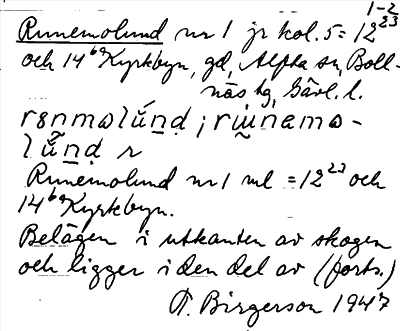 1-2
Runemolund nr 1 jr kol. 5 = 12²³
och 14⁶⁹ Kyrkbyn, gd, Alfta sn, Boll-
näs tg, Gävl. l.
rɞnmɷlǘn̲ḍ ; rɯ́nɑmɷ-
lǘn̲ḍ r
Runemolund nr 1 ml = 12²³ och
14⁶⁹ Kyrkbyn.
Belägen i utkanten av skogen
och ligger i den del av (forts.)
T. Birgerson 1947